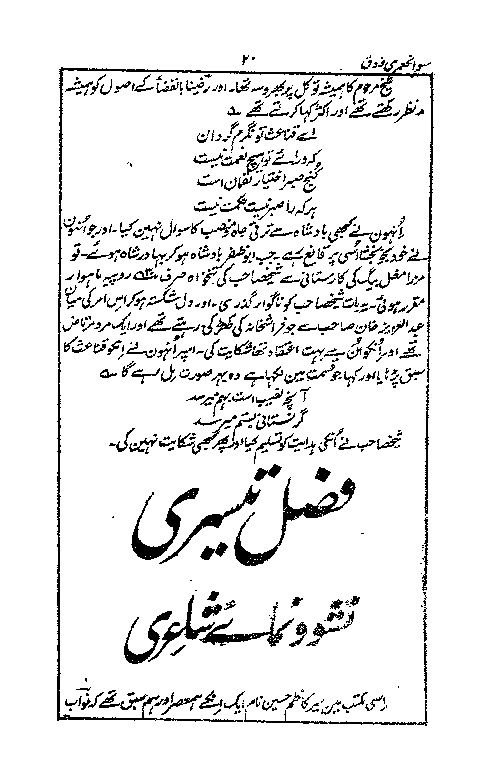 سوانحعمری ذوق
۲۰
شیخ مرحوم کا ہمیشہ توکل پر بھروسہ تھا۔ اور رضینا بالقضا کے اصول کو ہمیشہ
مدنظر رکھتے تھے اور اکثر کہا کرتے تھے ؎
اے قناعت تو نگرم گردان
کہ ورائے تو ہیچ نعمت نیست
گنج صبر اختیار لقمان است
ہر کہ را صبر نیست حکمت نیست
اُنہون نے کبھی بادشاہ سے ترقی جاہ و منصب کا سوال نہین کیا۔ اور جو اُنہون
نے خود بخود بخشا اُسی پر قانع رہے جب ابوظفر بادشاہ ہوکر بہادر شاہ ہوئے۔ تو
مرزا مغل بیگ کی کارستانی سے شیخصاحب کی تنخواہ صرف روپیہ ماہوار
مقرر ہوئی۔ یہ بات شیخصاحب کو ناگوار گذری۔ اور دل شکستہ ہوکر اس امر کی میان
عبدالعزیز خان صاحب سے جو فراشخانہ کی کھڑکی رہتے تھے اور ایک مرد مرتاض
تھے اور اُنکو اُن سے بہت اعتقاد تھا شکایت کی۔ اسپر اُنہون نے اِنکو قناعت کا
سبق پڑہایا اور کہا جو قسمت مین لکہا ہے وہ بہر صورت مل رہے گا ؎
آنچہ نصیب است بہم میرسد
گر نستانی بستم میرسد
شیخصاحب نے اُنکی ہدایت کو تسلیم کیا اور پھر کبھی شکایت نہین کی۔
فصل تیسری
نشوونمائے شاعری
اسی مکتب مین میر کاظم حسین نام ایک اِنکے ہمعصر اور ہم سبق تھے کہ نواب